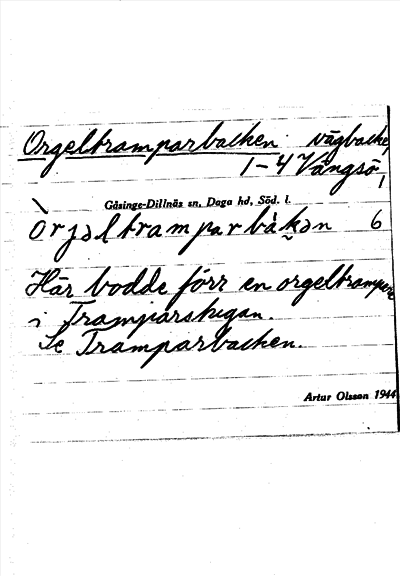 Orgeltramparbacken vägbacke,
1-4 Vängsö,
Gåsinge-Dillnäs sn, Daga hd, Söd. l.
òrjəltramparbàkən 6
Här bodde förr en orgeltrampare
i Tramparstugan.
Se Tramparbacken.
Artur Olsson 1944